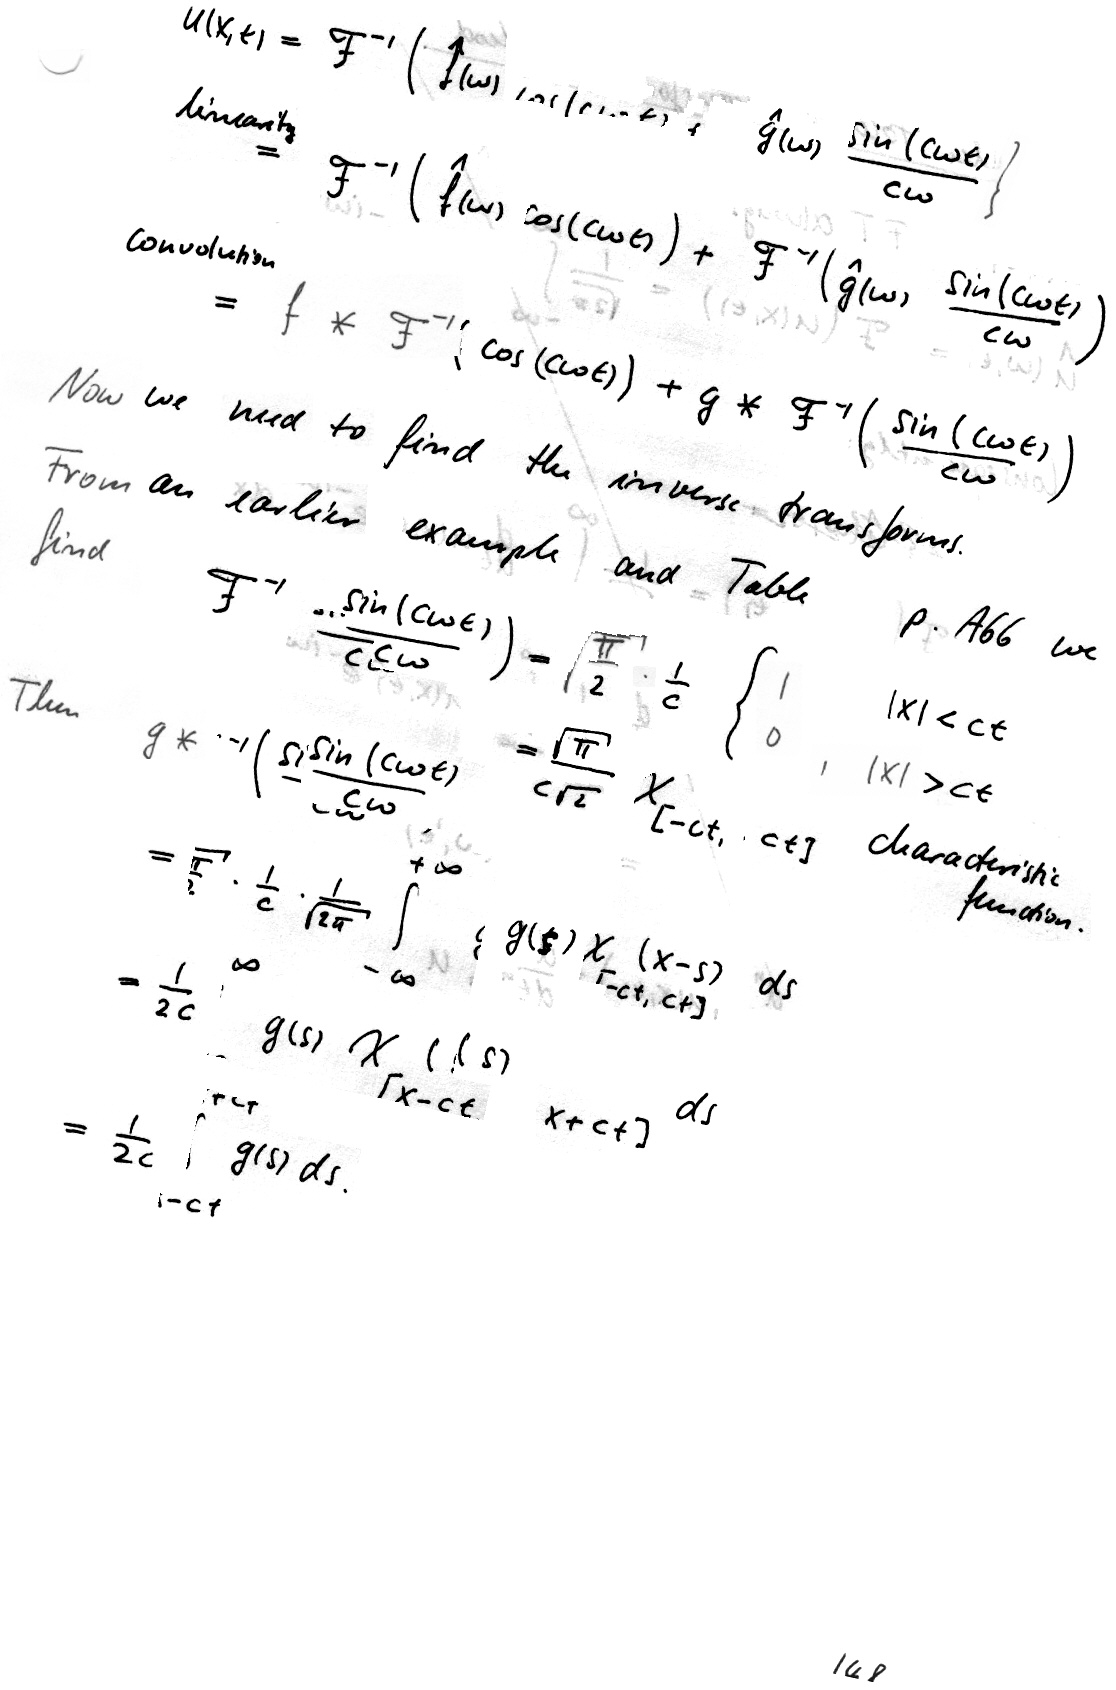 u(x,t) = F⁻¹( f̂(ω) cos(cωt) + ĝ(ω) sin(cωt)/cω )
linearity
= F⁻¹( f̂(ω) cos(cωt) ) + F⁻¹( ĝ(ω) sin(cωt)/cω )
convolution
= f * F⁻¹( cos(cωt) ) + g * F⁻¹( sin(cωt)/cω )
Now we need to find the inverse transforms.
From an earlier example and Table p. A66 we
find
F⁻¹ sin(cωt)/cω ) = √(π/2) · 1/c { 1 |x| < ct
0 , |x| > ct
= √π/(c√2) χ_[-ct, ct] characteristic
function.
Then
g * ⁻¹( sin(cωt)/cω
= π/2 · 1/c · 1/√(2π) ∫_{-∞}^{+∞} g(s) χ_[-ct, ct] (x-s) ds
= 1/2c ∞ g(s) χ_[x-ct x+ct] (s) ds
= 1/2c ∫_{-ct}^{+ct} g(s) ds.
148